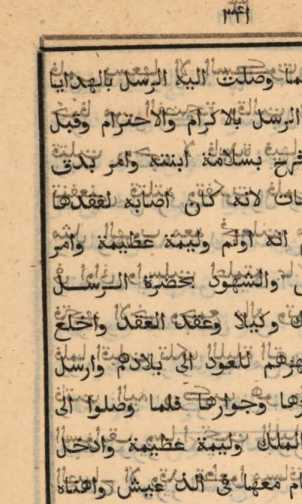 ٣٤١
وصلت اليه الرسل بالهدايا
الرسل بالاكرام والاحترام وقبل
فرح بسلامة ابنته وامر بدق
لانه كان اصابه لفقدها
انه اولم وليمة عظيمة وامر
والشهود بحضرة الرسل
وكيلا وعقد العقد واخلع
للعود الى بلادهم وارسل
وجوارها فلما وصلوا الى
الملك وليمة عظيمة وادخل
معها فى الذ عيش واهناه